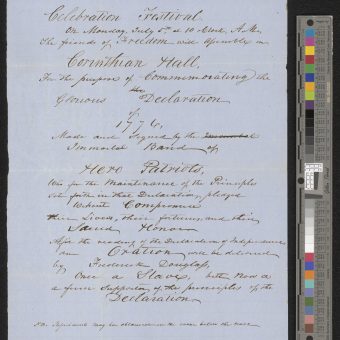 Celebration Festival
On Monday, July 5th at 10 Clock, A.M.
the friends of Freedom will assemble in
Corinthian Hall,
For the purpose of Commemorating the
Glorious the Declaration
of
1776,
Made and Signed by the immortal
Immortal Band of
Hero Patriots,
Who for the Maintenance of the Principles
set forth in that Declaration, pledged
Without Compromise
their Lives, their fortunes, and their
Sacred Honor
After the reading of the Declaration of Independence
an Oration will be delivered
by Frederick Douglass,
Once a Slave, but Now a
a firm supporter of the principles of the
Declaration
may be obtained in the room below the